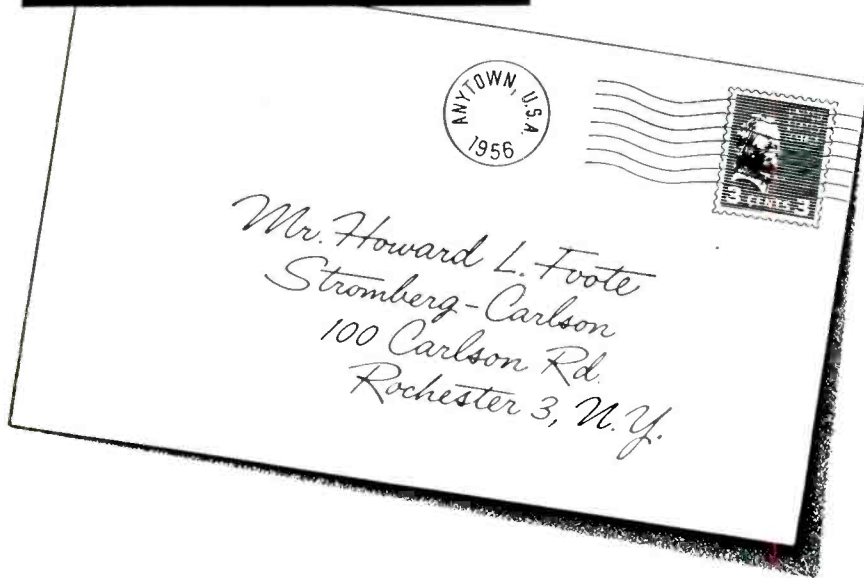 ANYTOWN, U.S.A.
1956
CENTS
Mr. Howard L. Foote
Stromberg-Carlson
100 Carlson Rd.
Rochester 3, N.Y.